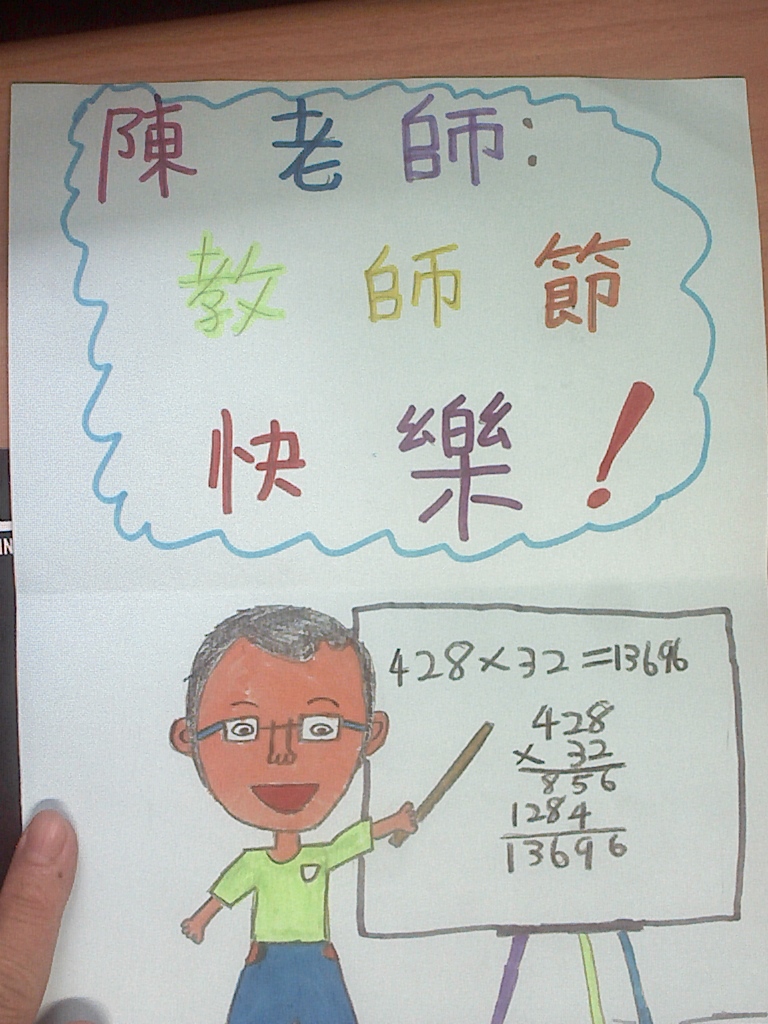 陳老師:
教師節
快樂!
428×32=13696
428
× 32
856
1284
13696
IN